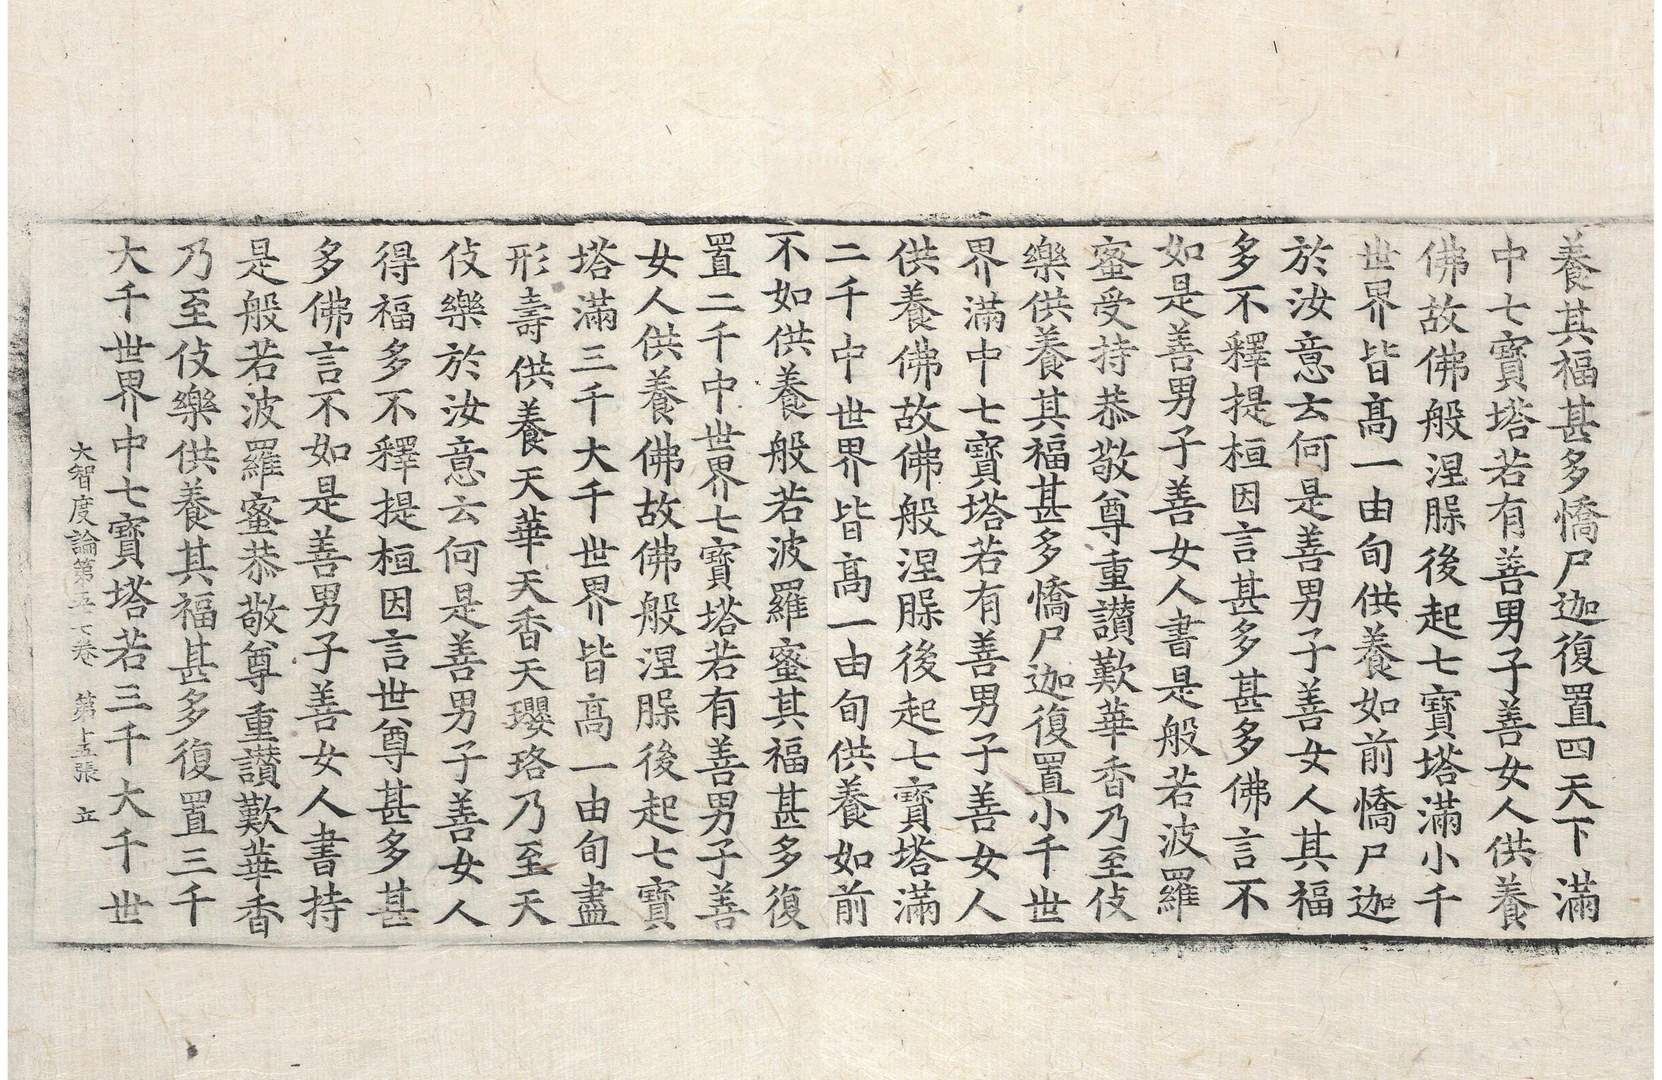 養其福甚多憍尸迦復置四天下滿
中七寶塔若有善男子善女人供養
佛故佛般涅槃後起七寶塔滿小千
世界皆高一由旬供養如前憍尸迦
於汝意云何是善男子善女人其福
多不釋提桓因言甚多甚多佛言不
如是善男子善女人書是般若波羅
蜜受持恭敬尊重讃歎華香乃至伎
樂供養其福甚多憍尸迦復置小千世
界滿中七寶塔若有善男子善女人
供養佛故佛般涅槃後起七寶塔滿
二千中世界皆高一由旬供養如前
不如供養般若波羅蜜其福甚多復
置二千中世界七寶塔若有善男子善
女人供養佛故佛般涅槃後起七寶
塔滿三千大千世界皆高一由旬盡
形壽供養天華天香天瓔珞乃至天
伎樂於汝意云何是善男子善女人
得福多不釋提桓因言世尊甚多甚
多佛言不如是善男子善女人書持
是般若波羅蜜恭敬尊重讃歎華香
乃至伎樂供養其福甚多復置三千
大千世界中七寶塔若三千大千世
大智度論第五七卷 第十五張 立